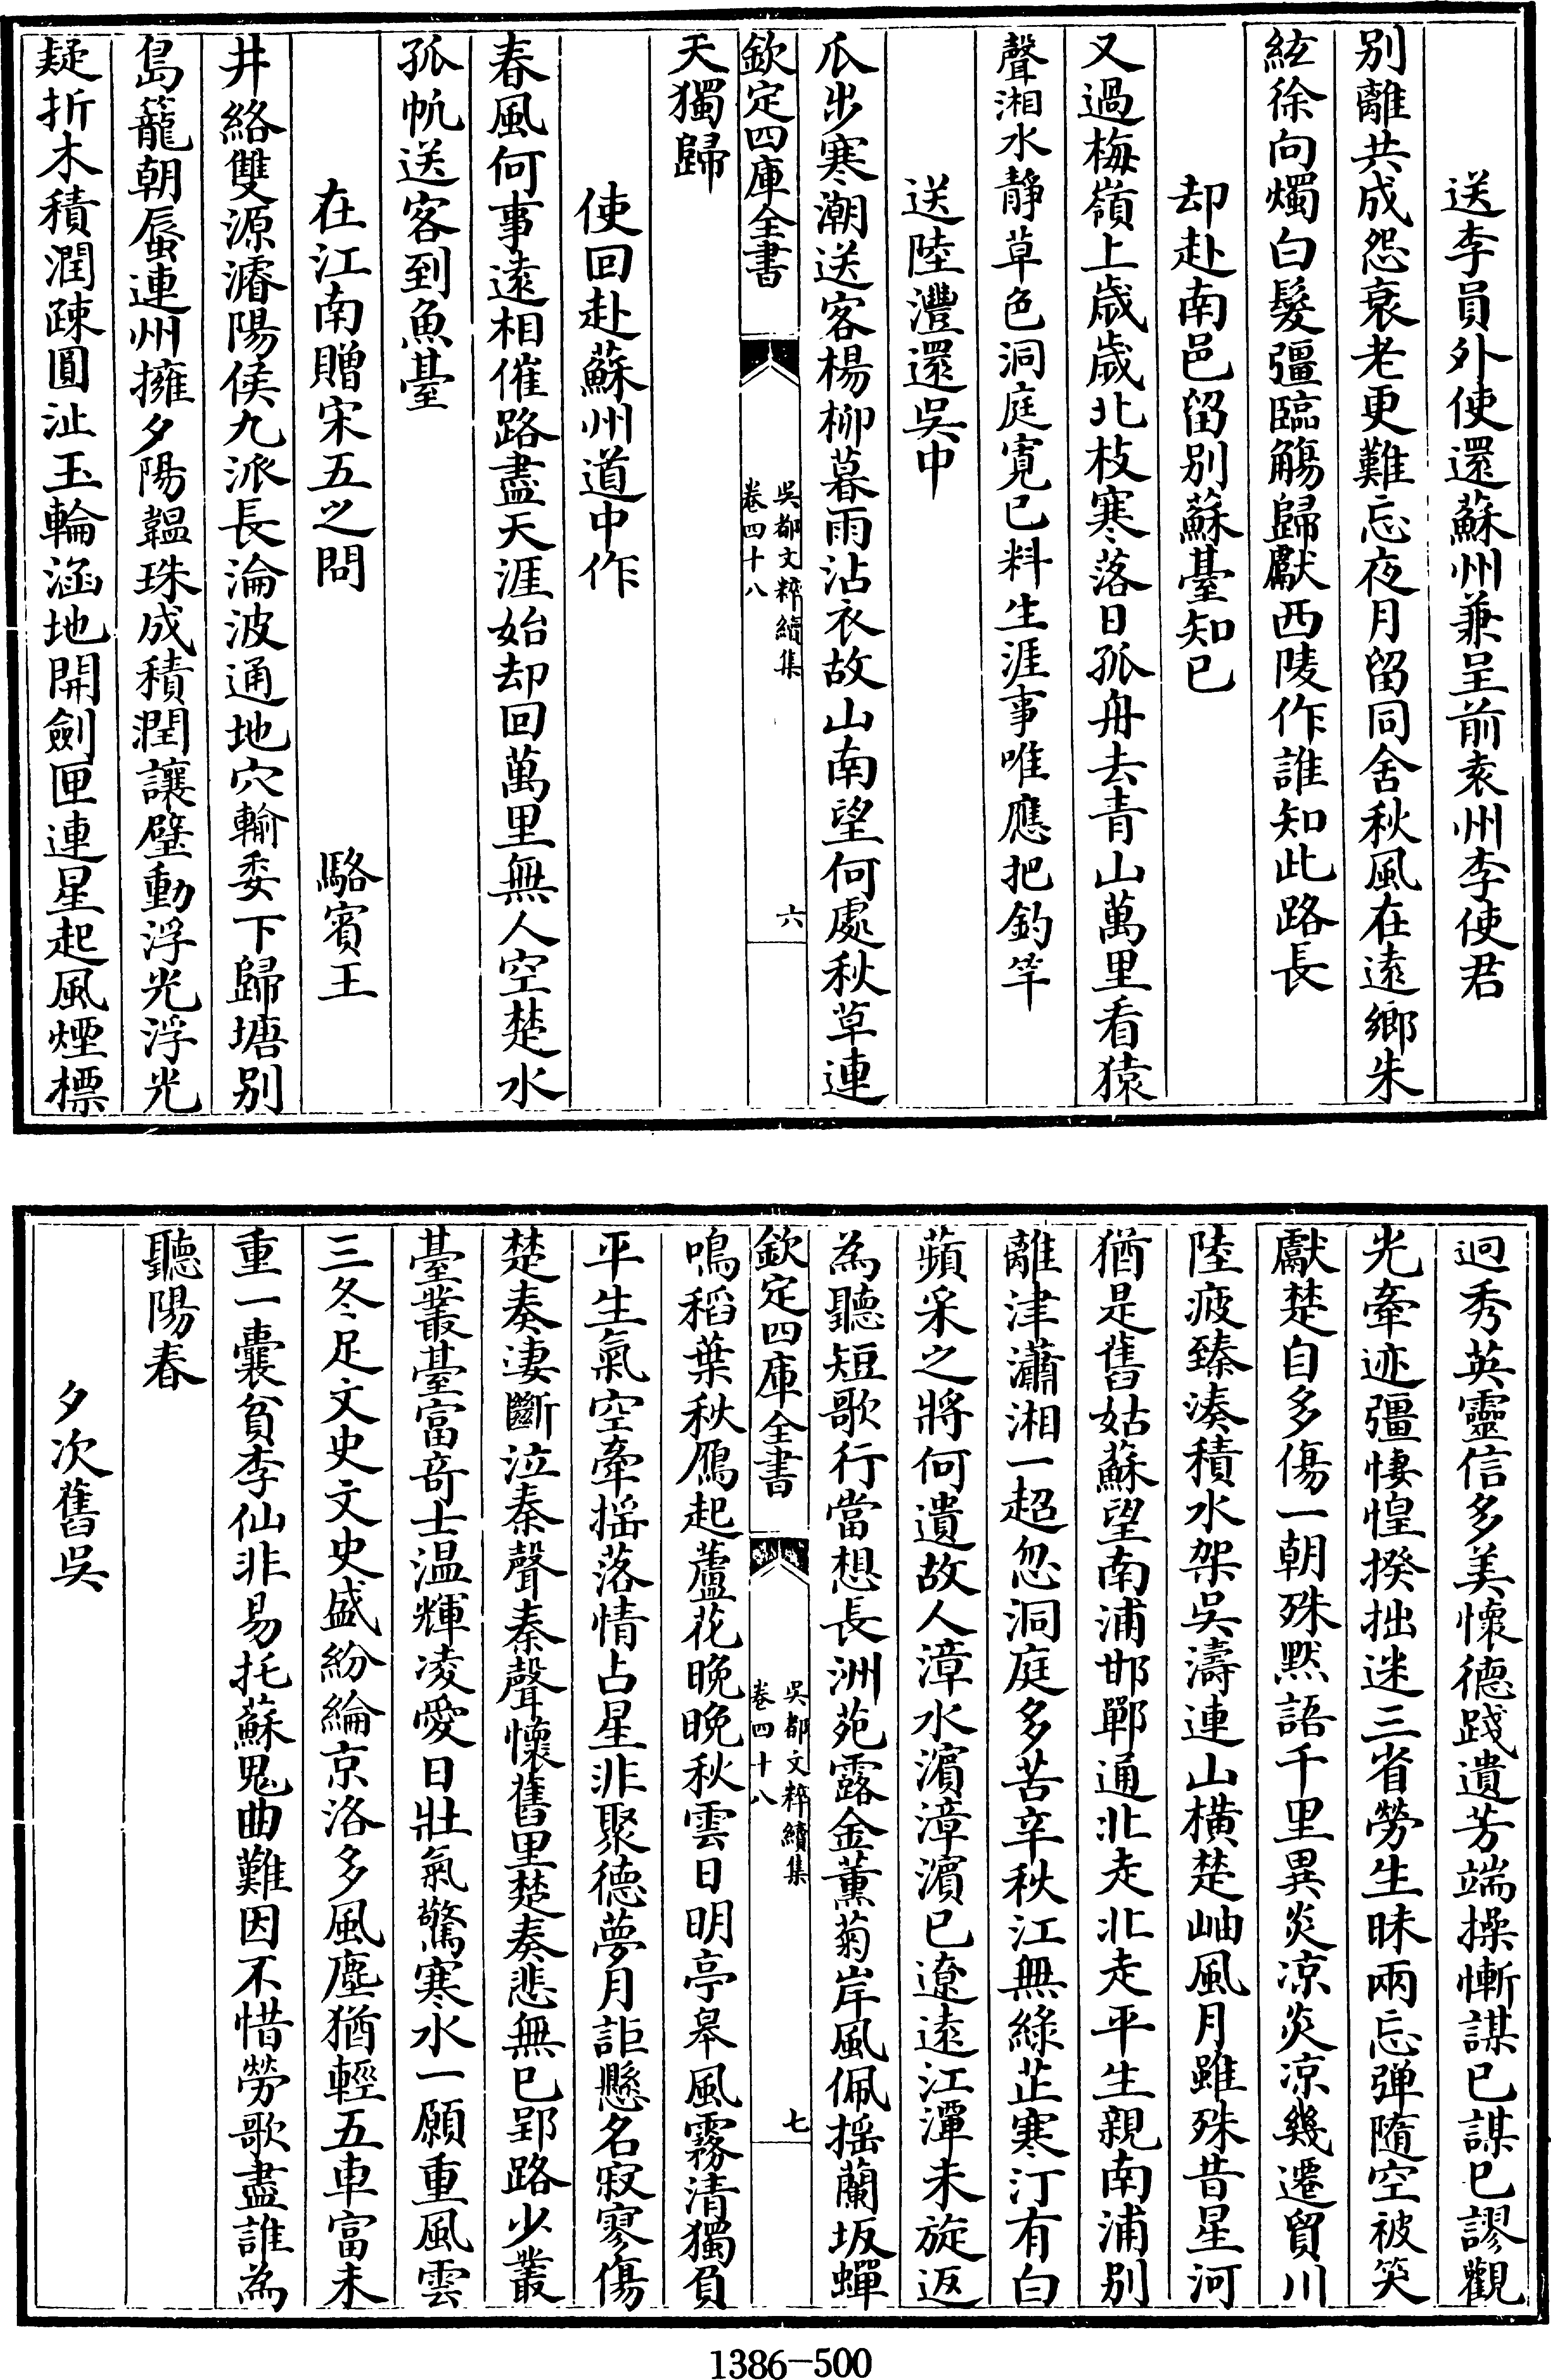 送李員外使還蘇州兼呈前袁州李使君
别離共成怨衰老更難忘夜月留同舍秋風在遠鄉朱
絃徐向燭白髮彊臨觴歸獻西陵作誰知此路長
却赴南邑留别蘇臺知已
又過梅嶺上歲歲北枝寒落日孤舟去青山萬里看猿
聲湘水靜草色洞庭寛已料生涯事唯應把釣竿
送陸灃還吳中
瓜步寒潮送客楊柳暮雨沾衣故山南望何處秋草連
欽定四庫全書
吳都文粹續集
卷四十八
六
天獨歸
使回赴蘇州道中作
春風何事遠相催路盡天涯始却回萬里無人空楚水
孤帆送客到魚臺
在江南贈宋五之問 駱賓王
井絡雙源濬陽侯九派長淪波通地穴輸委下歸塘别
島籠朝蜃連州擁夕陽韞珠成積潤讓璧動浮光浮光
疑折木積潤疎圓沚玉輪涵地開劍匣連星起風煙標
迥秀英靈信多美懷德踐遺芳端操慚謀已謀已謬觀
光牽迹彊悽惶揆拙迷三省勞生昧兩忘弹隨空被笑
獻楚自多傷一朝殊默語千里異炎凉炎凉幾遷貿川
陸疲臻湊積水架吳濤連山横楚岫風月雖殊昔星河
猶是舊姑蘇望南浦邯鄲通北走北走平生親南浦别
離津瀟湘一超忽洞庭多苦辛秋江無綠芷寒汀有白
蘋采之將何遺故人漳水濵漳濵已遼遠江潭未旋返
為聽短歌行當想長洲苑露金薰菊岸風佩揺蘭坂蟬
欽定四庫全書
吳都文粹續集
卷四十八
七
鳴稻葉秋鴈起蘆花晚晚秋雲日明亭皋風霧清獨負
平生氣空牽揺落情占星非聚德夢月詎懸名寂寥傷
楚奏凄斷泣秦聲秦聲懷舊里楚奏悲無已郢路少叢
臺叢臺富竒士温輝凌愛日壯氣驚寒水一願重風雲
三冬足文史文史盛紛綸京洛多風塵猶輕五車富未
重一囊貧李仙非易托蘇鬼曲難因不惜勞歌盡誰為
聽陽春
夕次舊吳
1386-500